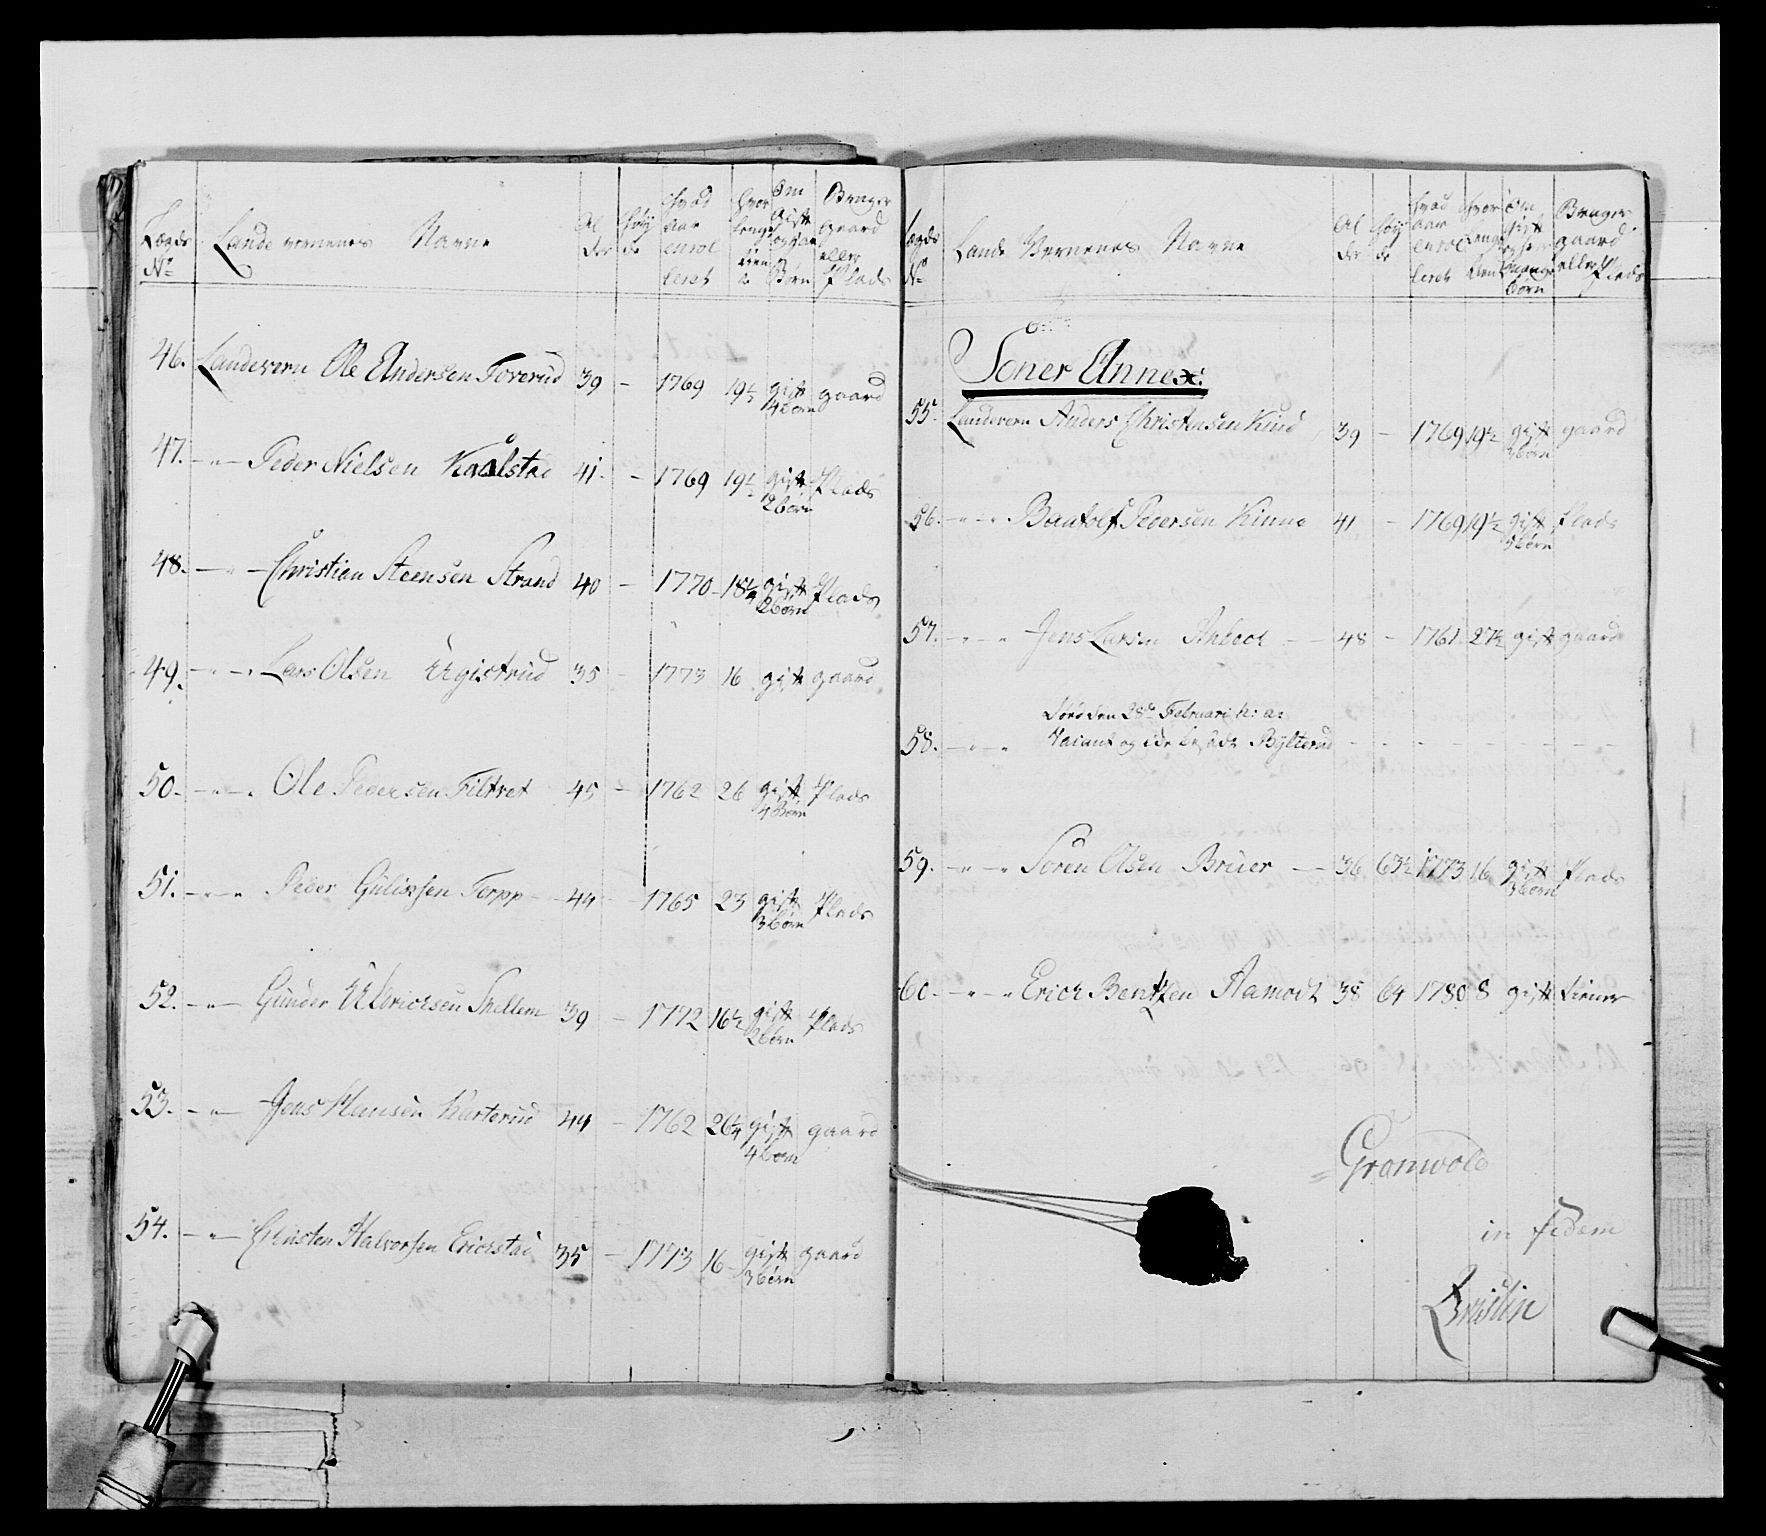 Lægds No Lande vernenes Navne Alder Høyde Hvad aar enrolleret Hvor lenge tient Om gift og har Børn Bruger gaard eller Plads
46. Landevern Ole Andersen Foverud 39 – 1769 19½ gift 4 børn gaard
47. –"– Peder Nielsen Kaalstad 41. – 1769 19½ gift 2 børn Plads
48. –"– Christian Steensen Strand 40 – 1770 – 18¼ gift 2 børn Plads
49. –"– Lars Olsen Ugistrud 35 – 1773 16 gift gaard
50. –"– Ole Pedersen Filtvet 45 – 1762 26 gift 4 Børn Plads
51. –"– Peder Gulichsen Torpp – 44 – 1765 23 gift 3 børn Plads
52. –"– Gunder Ulrichsen Skellem 39 – 1772 16½ gift 2 børn Plads
53. –"– Jens Hansen Karterud 44 – 1762 26¼ gift 4 børn gaard
54. –"– Halvorsen Erichstad 35 – 1773 16 – gift 3 børn gaard
Lægds No Lande Vernenes Navne Alder Høyde Hvad aar enrolleret Hvor lenge tient Om gift og har mange børn Bruger gaard eller Plads
Soner Annex:
55. Landevern Anders Christensen Kind 39 – 1769 19½ gift 3 børn gaard
56. –"– Baatolf Pedersen Kinne 41 – 1769 19½ gift 5 børn Plads
57. –"– Jens Larsen – 48 – 1761. 27½ gift gaard
Død den 28de Februari h: a:
58. –"– Vacant og ube sadt Bylterud – – – – – – –
59. –"– Søren Olsen Bruer – 36 63½ 1773 16 gift 3 børn Plads
60. –"– Erich Bentzen Aamodt 38 64 1780 8 gift tiener
Gronwold
in fidem